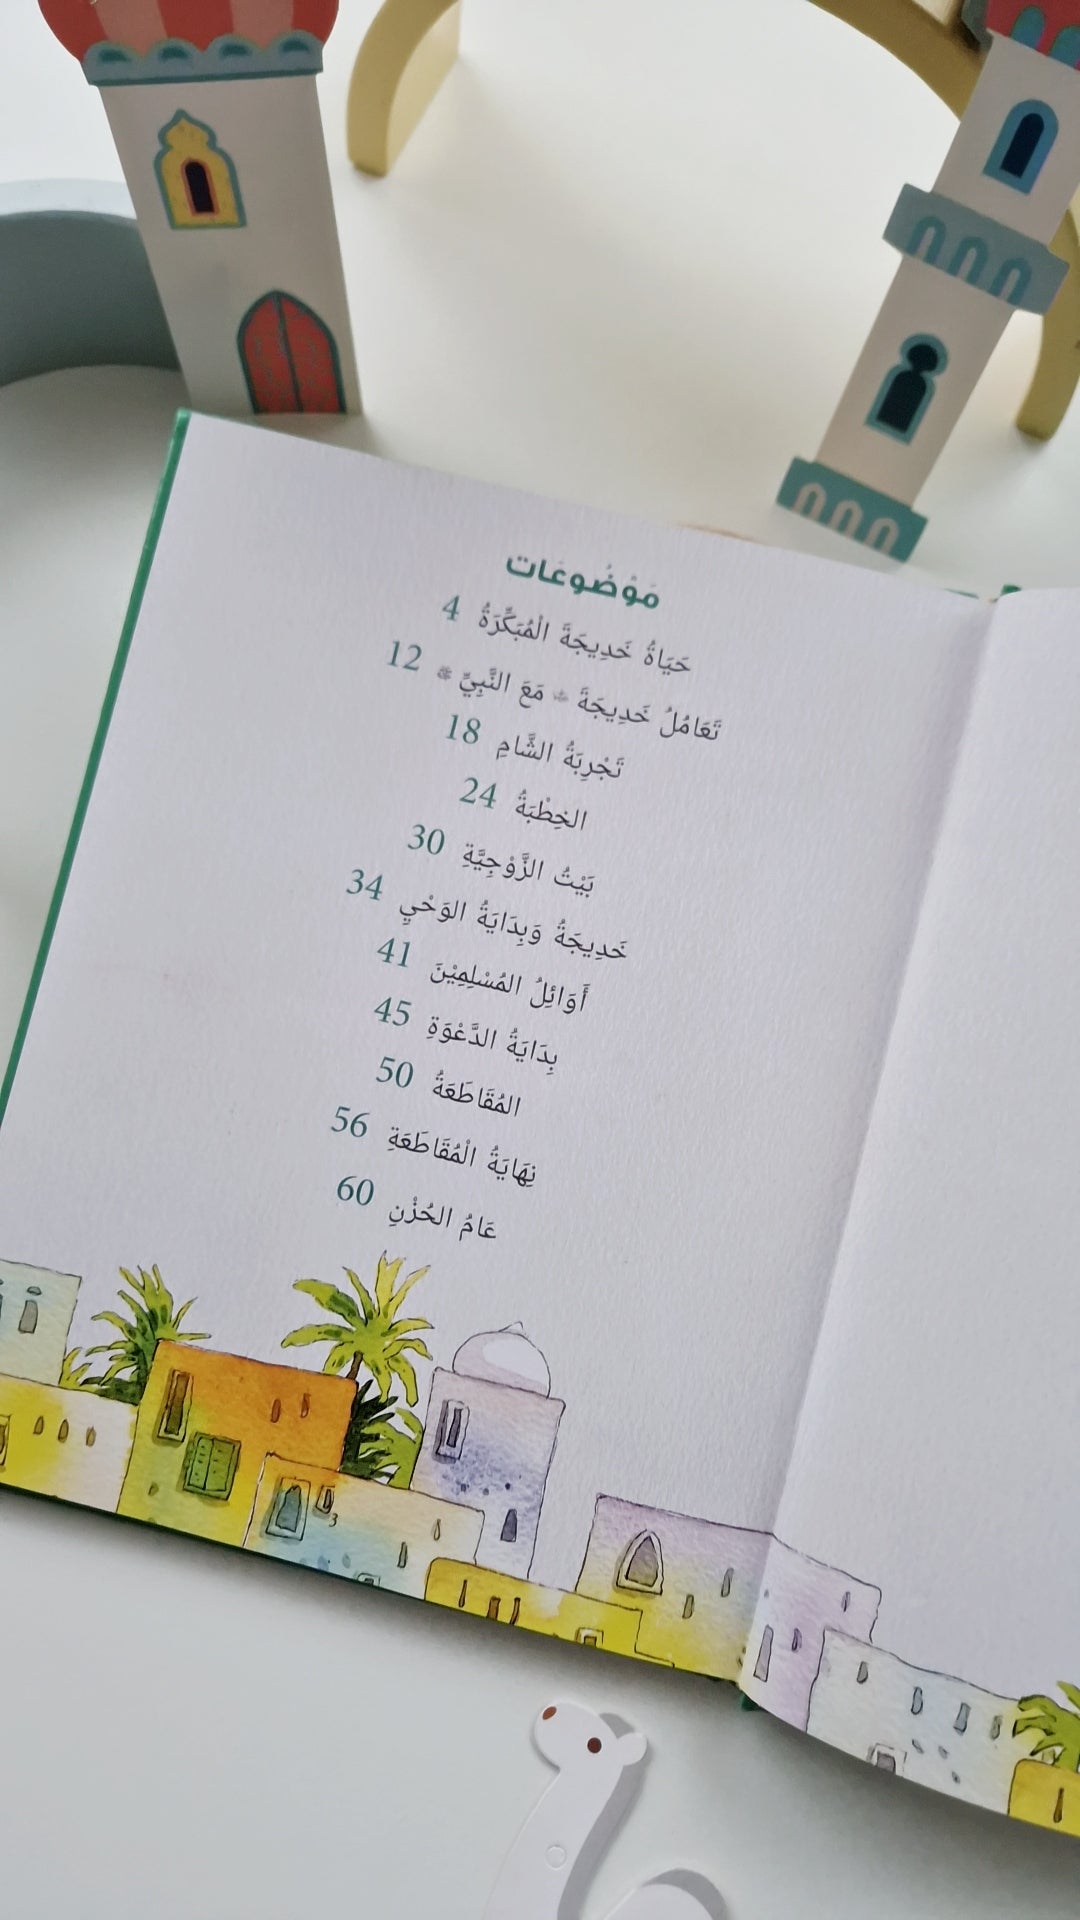 مَوْضُوعَات
حَيَاةُ خَدِيجَةَ الْمُبَكِّرَةُ 4
تَعَامُلُ خَدِيجَةَ مَعَ النَّبِيِّ ﷺ 12
تَجْرِبَةُ الشَّامِ 18
الخِطْبَةُ 24
بَيْتُ الزَّوْجِيَّةِ 30
خَدِيجَةُ وَبِدَايَةُ الوَحْيِ 34
أَوَائِلُ المُسْلِمِيْنَ 41
بِدَايَةُ الدَّعْوَةِ 45
المُقَاطَعَةُ 50
نِهَايَةُ الْمُقَاطَعَةِ 56
عَامُ الحُزْنِ 60